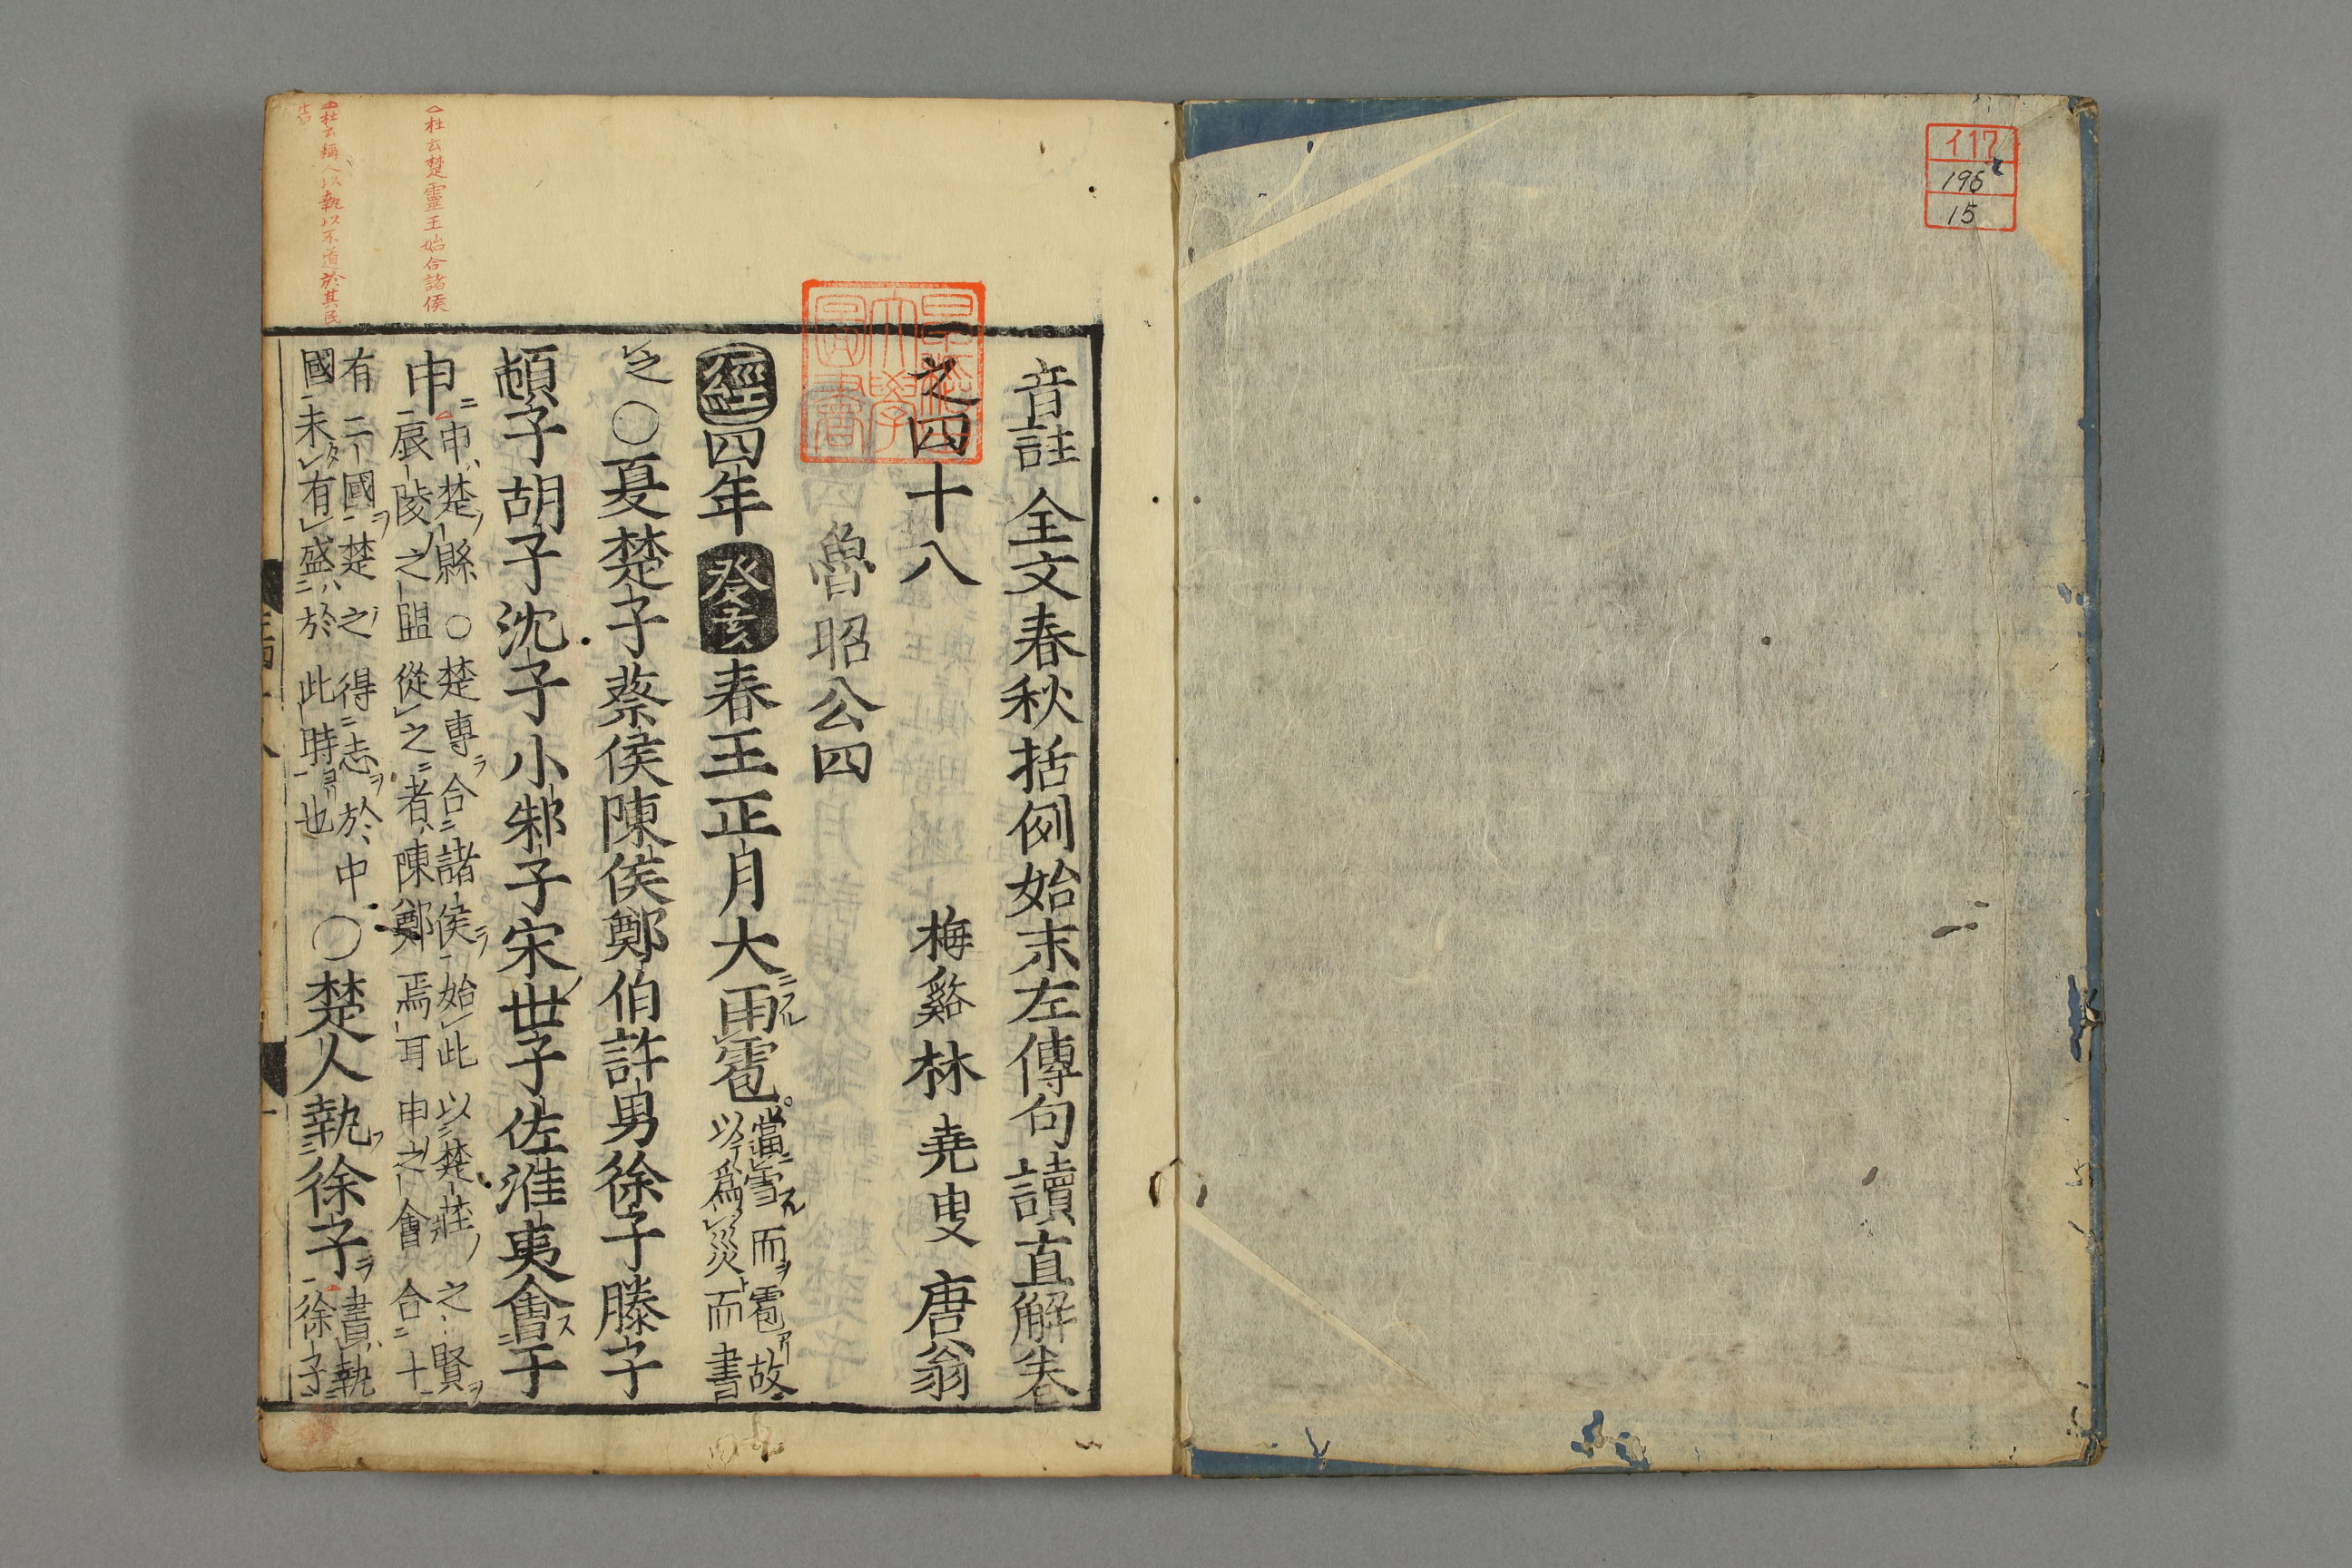 イ117
196
15
音註全文春秋括例始末左傳句讀直解卷
之四十八 梅谿林堯叟唐翁
早稻田大學圖書
魯昭公四
經四年癸亥春王正月大雨雹當雪而雹故以爲災而書
之○夏楚子蔡侯陳侯鄭伯許男徐子滕子
頓子胡子沈子小邾子宋世子佐淮夷會于
申申楚縣○楚專合諸侯始此以楚莊之賢
辰陵之盟從之者陳鄭焉耳申之會合十
有二國楚之得志於中
國未有盛於此時也○楚人執徐子書執
徐子
△杜云楚靈王始合諸侯
△杜云稱人以執以不道於其民
告